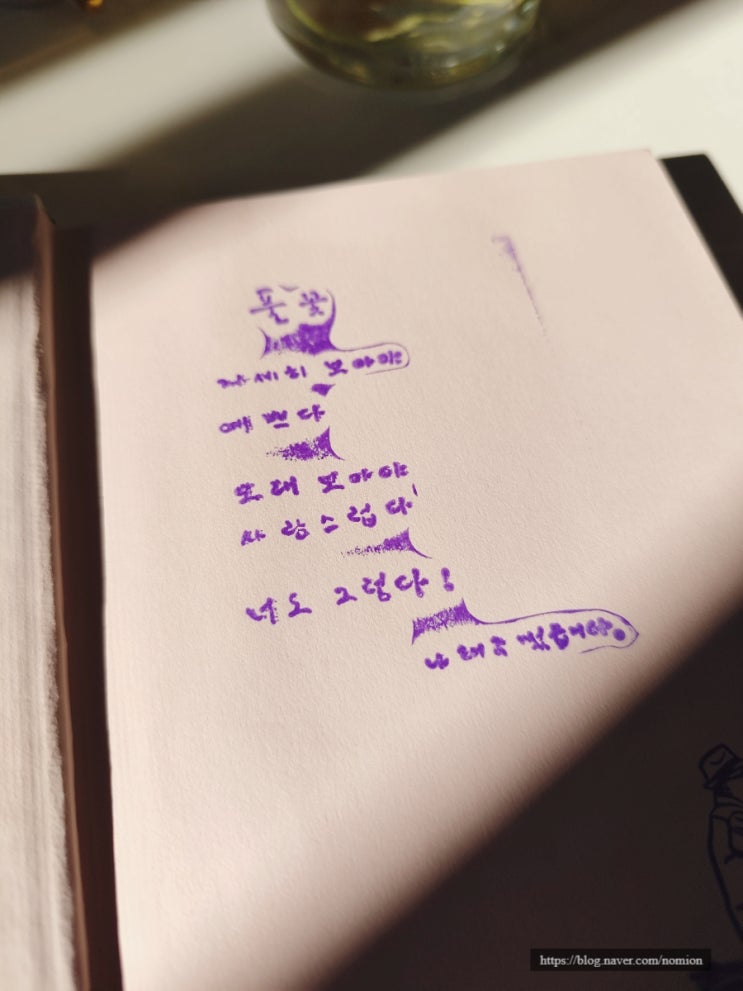 풀꽃
자세히 보아야
예쁘다
오래 보아야
사랑스럽다
너도 그렇다!
나태주
https://blog.naver.com/nomion